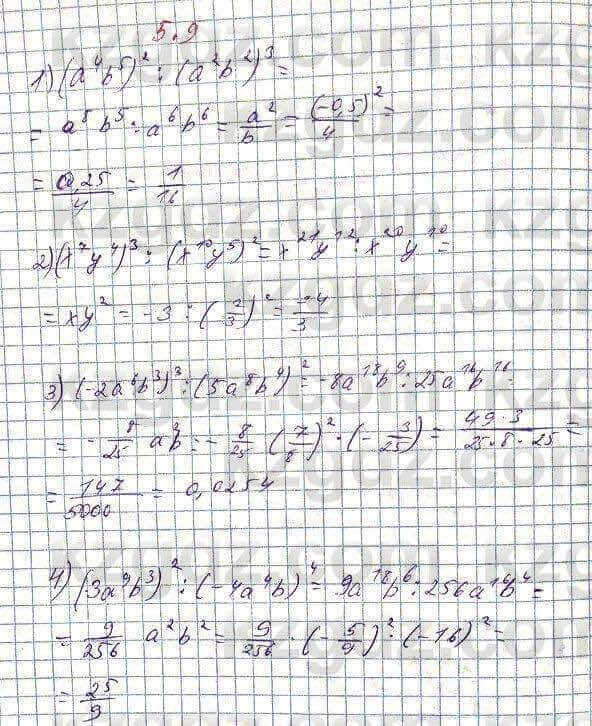 5.9
1) (a⁴b⁵)² : (a²b²)³ =
= a⁸ b⁵ : a⁶ b⁶ = a²/b = (-0,5)²/4 =
= 0,25/4 = 1/16
2) (x⁷y⁴)³ : (x¹⁰y⁵)² = x²¹y¹² : x²⁰ y¹⁰ =
= xy² = -3 : (2/3)² = -4/3
3) (-2a⁶b³)³ : (5a⁸b⁴)² = -8a¹⁸b⁹ : 25a¹⁶b¹⁶ =
= - 8/25 a b = - 8/25 (7/8)² · (- 3/25) = 49·3/25·8·25 =
= 147/5000 = 0,0254
4) (3a⁹b³)² : (-4a⁴b)⁴ = 9a¹⁸b⁶ : 256a¹⁶b⁴ =
= 9/256 a²b² = 9/256 · (- 5/9)² · (-16)² =
= 25/9
kzgdz.com